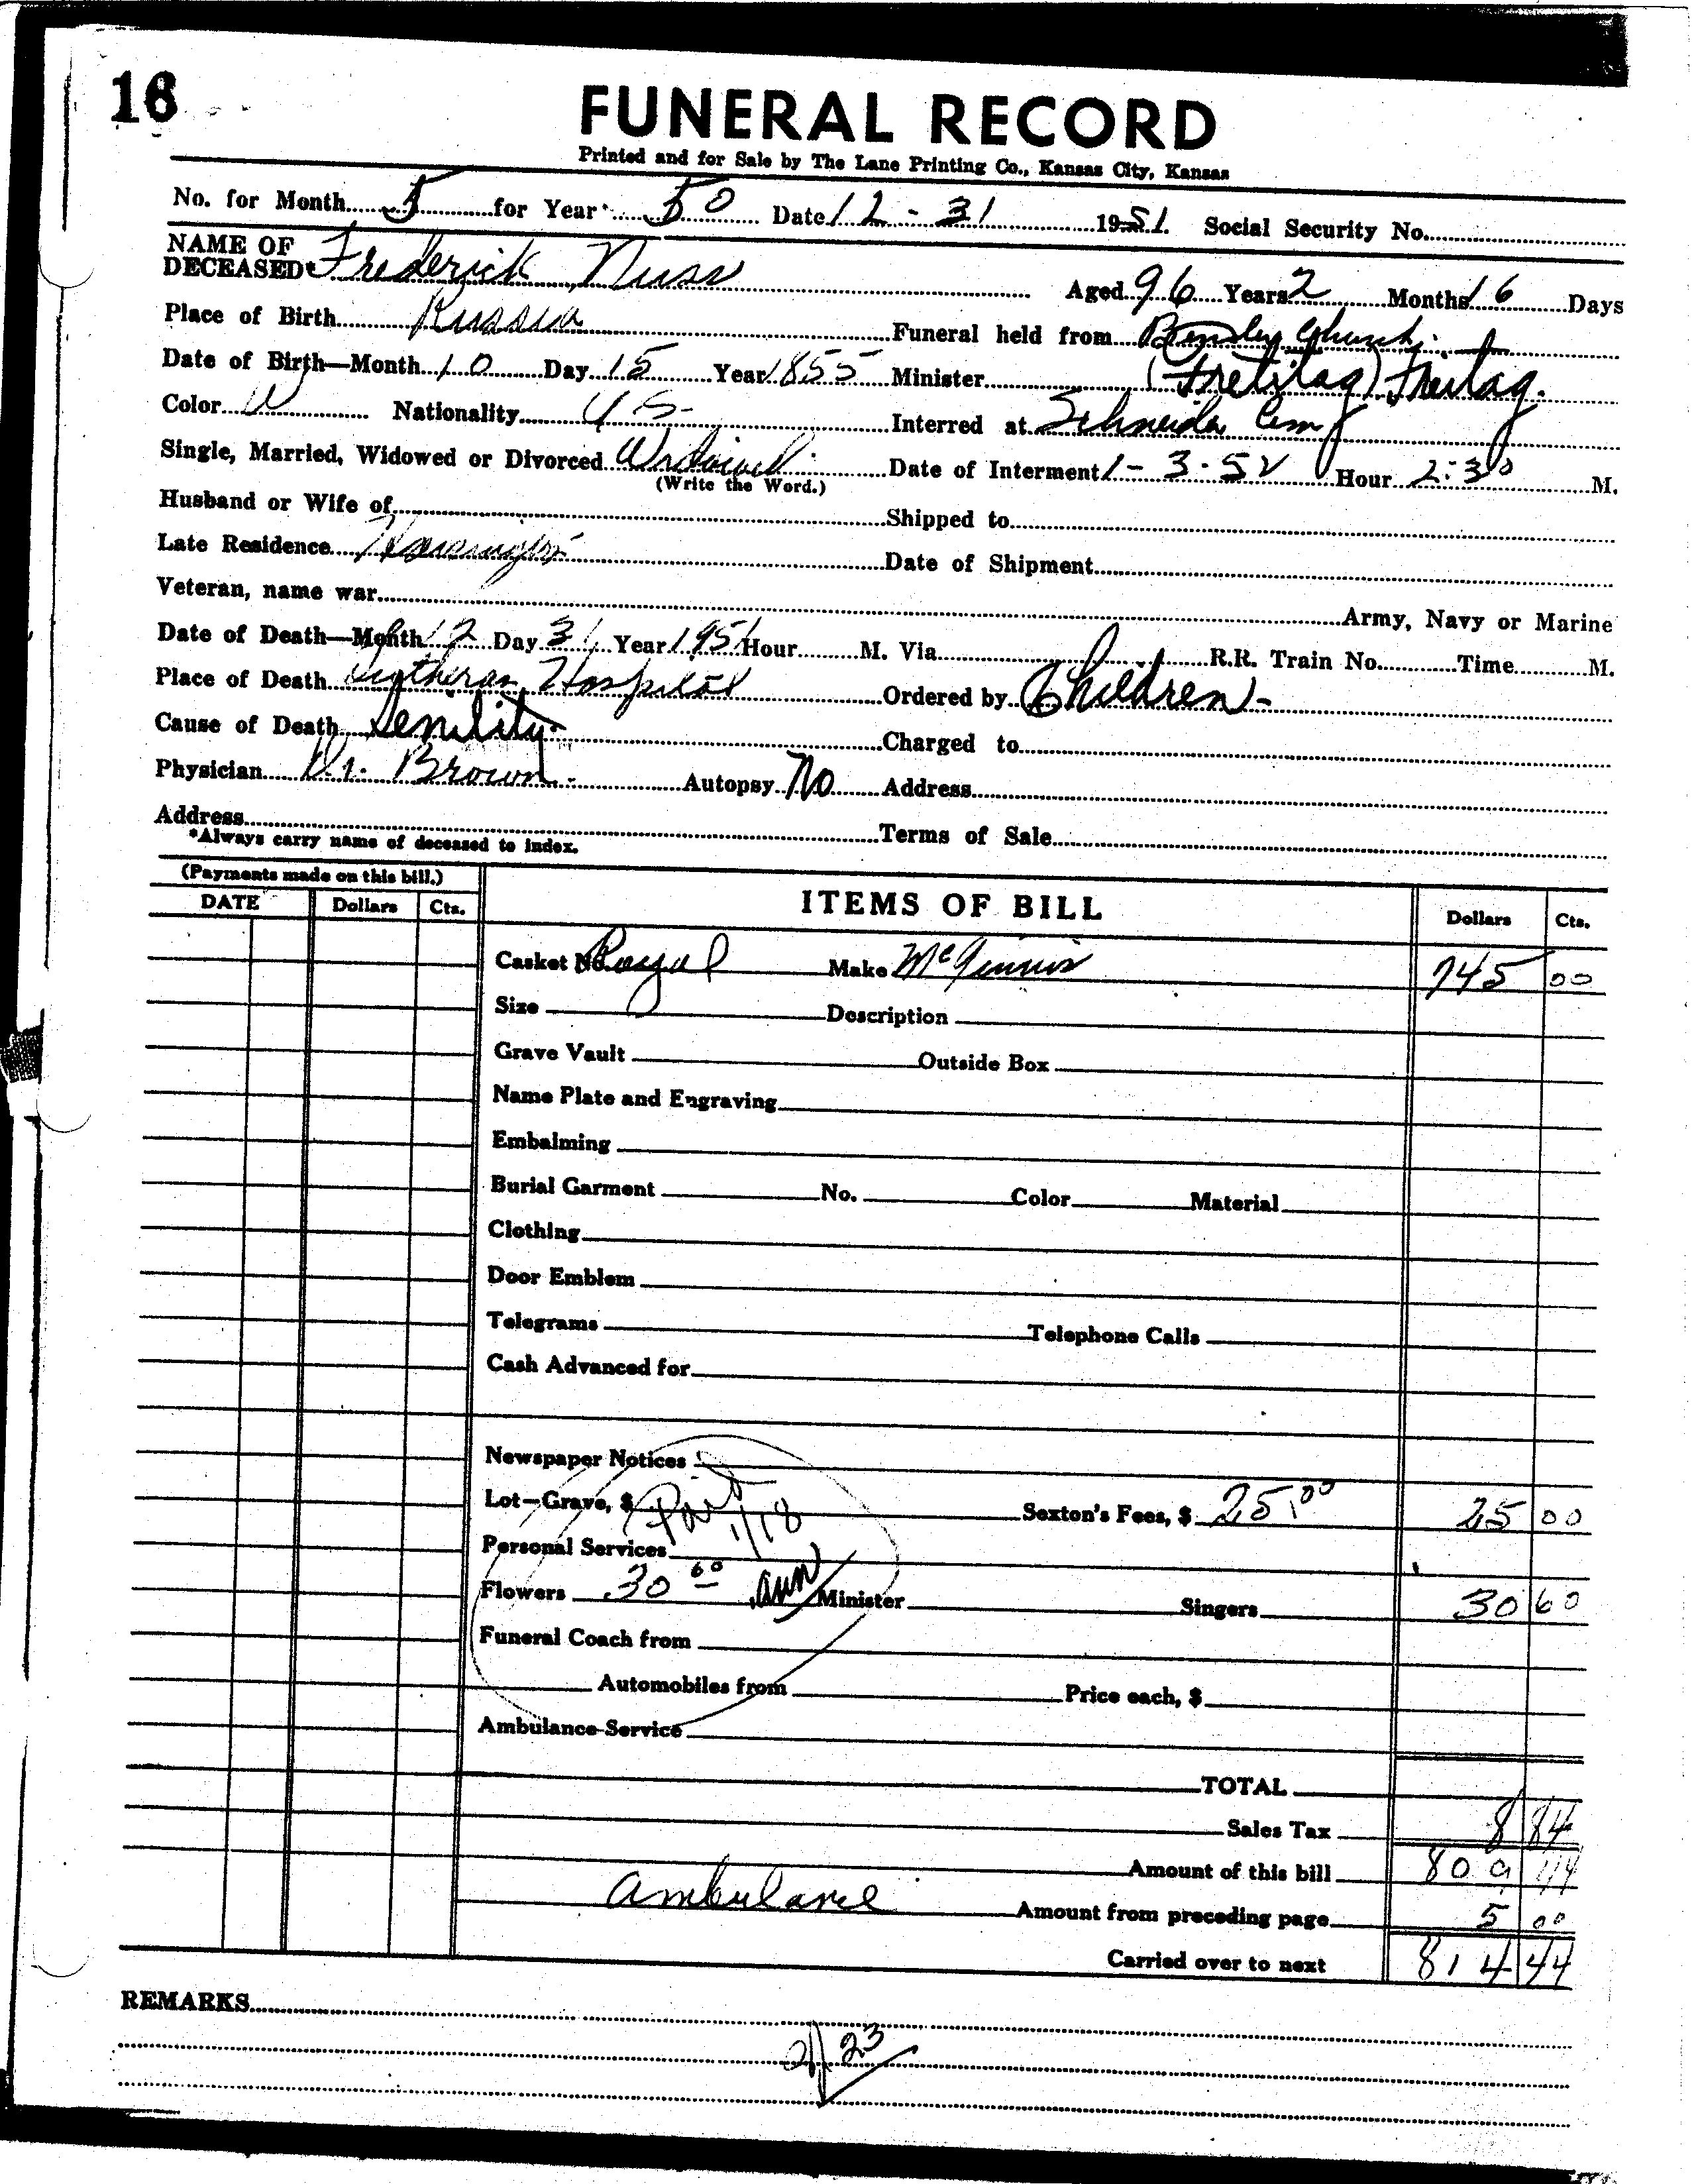 16
FUNERAL RECORD
Printed and for Sale by The Lane Printing Co., Kansas City, Kansas
No. for Month 5 for Year 50 Date 12-31 1951. Social Security No.
NAME OF DECEASED* Frederick Nuss Aged 96 Years 2 Months 16 Days
Place of Birth Russia Funeral held from Church
Date of Birth—Month 10 Day 15 Year 1855 Minister (Freitag) Freitag.
Color W Nationality U S Interred at Schneider Cem
Single, Married, Widowed or Divorced Widowed Date of Interment 1-3-52 Hour 2:30 M.
(Write the Word.)
Husband or Wife of Shipped to
Late Residence Date of Shipment
Veteran, name war Army, Navy or Marine
Date of Death—Month 12 Day 31 Year 1951 Hour M. Via R.R. Train No. Time M.
Place of Death Lutheran Hospital Ordered by Children-
Cause of Death Senility Charged to
Physician Dr. Brown Autopsy No Address
Address Terms of Sale
*Always carry name of deceased to index.
(Payments made on this bill.)
DATE Dollars Cts. ITEMS OF BILL Dollars Cts.
Casket No. Royal Make McGinnis 745 00
Size Description
Grave Vault Outside Box
Name Plate and Engraving
Embalming
Burial Garment No. Color Material
Clothing
Door Emblem
Telegrams Telephone Calls
Cash Advanced for
Newspaper Notices
Lot—Grave, $ Paid 1/18 Sexton's Fees, $ 25.00 25 00
Personal Services
Flowers 30 60 Minister Singers 30 60
Funeral Coach from
Automobiles from Price each, $
Ambulance Service
TOTAL
Sales Tax 8 84
Amount of this bill 809 44
Ambulance Amount from preceding page 5 00
Carried over to next 814 44
REMARKS
2/23